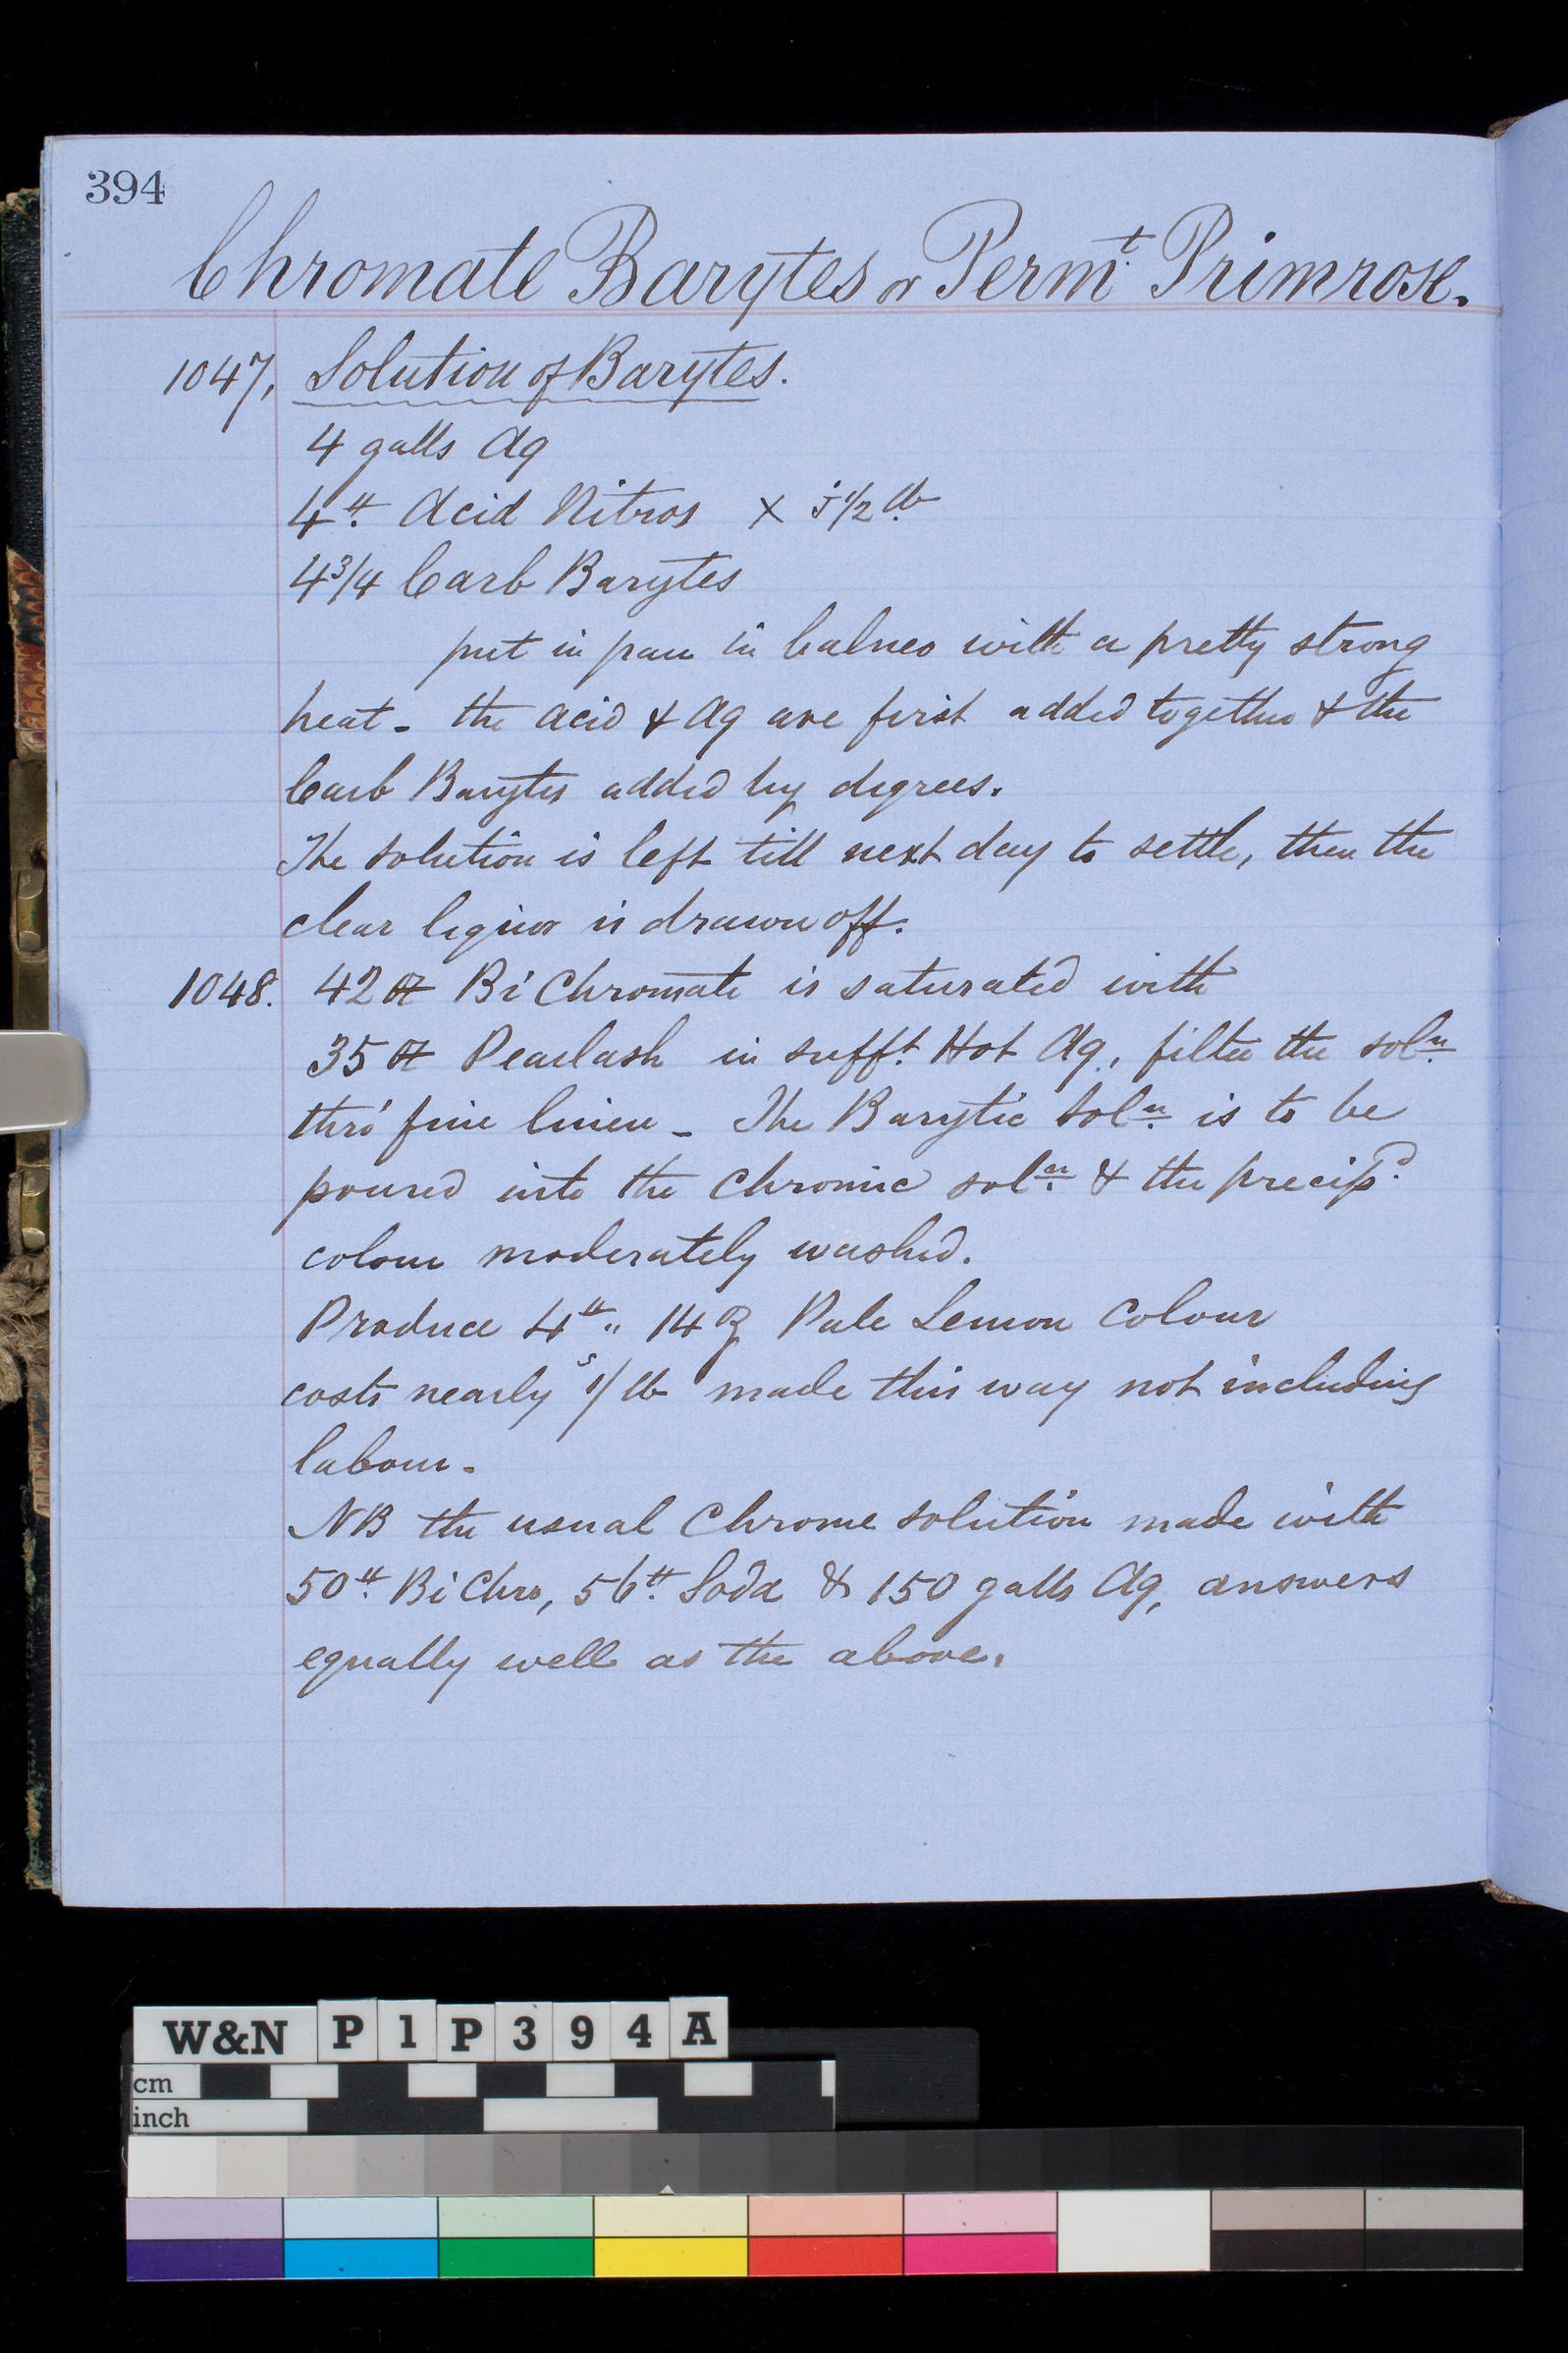 394
Chromate Barytes or Permt Primrose.
1047, Solution of Barytes.
4 galls Aq
4 lb Acid Nitros × 5 1/2 lb
4 3/4 Carb Barytes
put in pan in balneo with a pretty strong
heat - the acid & Aq are first added together & the
Carb Barytes added by degrees.
The solution is left till next day to settle, then the
clear liquor is drawn off.
1048. 42 oz Bi Chromate is saturated with
35 oz Pearlash in sufft Hot Aq, filter the soln
thro' fine linen - The Barytic soln is to be
poured into the Chromic soln & the precipd
colour moderately washed.
Produce 4 lb " 14 oz Pale Lemon Colour
costs nearly 1s/ lb made this way not including
labour -
NB the usual Chrome solution made with
50 lb Bi Chro, 56 lb Soda & 150 galls Aq, answers
equally well as the above.
W&N P1P394A
cm
inch